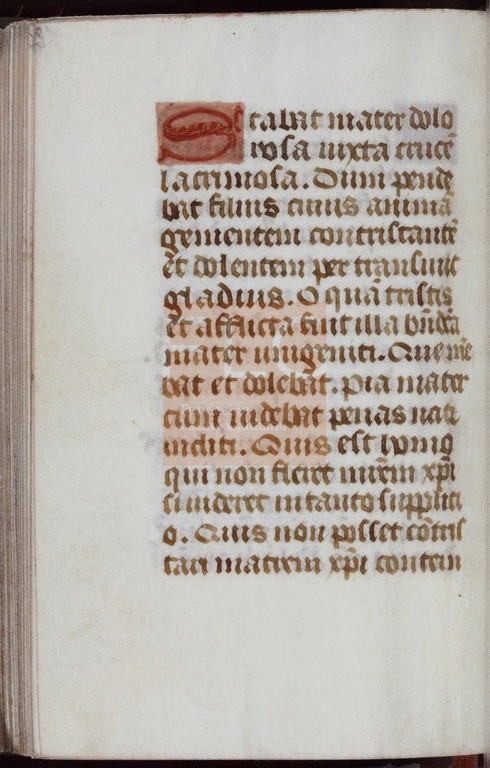 Stabat mater dolo
rosa iuxta crucē
lacrimosa. Dum pende
bat filius cuius animā
gementem contristantē
et dolentem per transiuit
gladius. O quā tristis
et afflicta fuit illa bn̄dc̄a
mater unigeniti. Que me
bat et dolebat. pia mater
cum uidebat penas nati
incliti. Quis est homo
qui non fleret mr̄em xp̄i
si uideret in tanto supplici
o. Quis non posset cōtris
tari matrem xp̄i contem